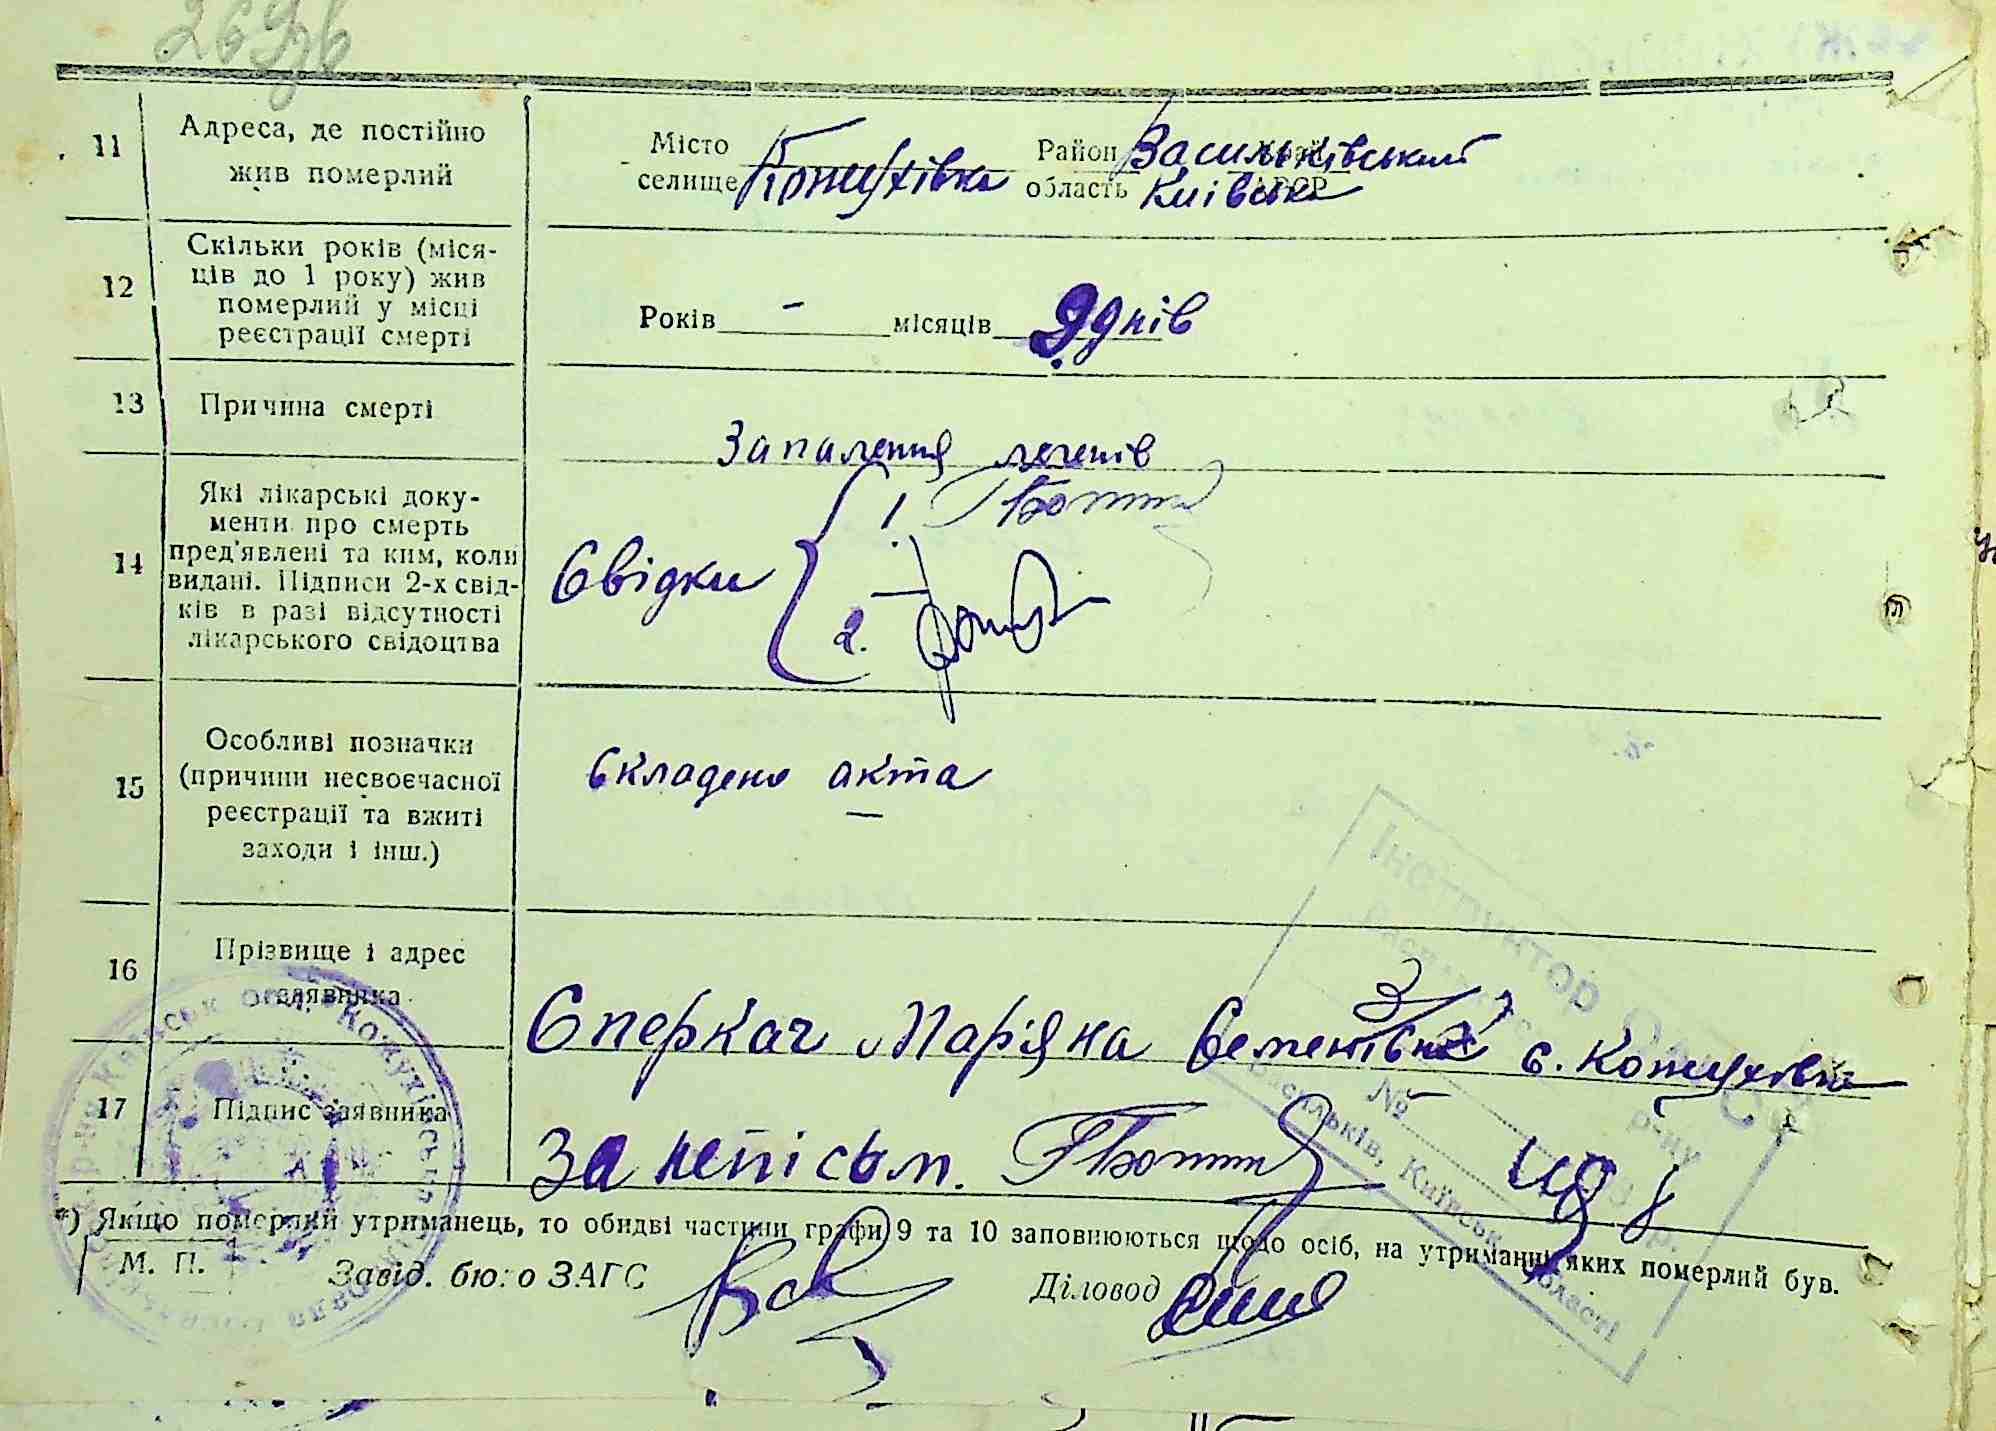 269зв
11
Адреса, де постійно
жив померлий
Місто
селище Кожухівка
Район Васильківський
область Київська
12
Скільки років (міся-
ців до 1 року) жив
померлий у місці
реєстрації смерті
Років - місяців 9 днів
13
Причина смерті
Запалення легенів
14
Які лікарські доку-
менти про смерть
пред'явлені та ким, коли
видані. Підписи 2-х свід-
ків в разі відсутності
лікарського свідоцтва
Свідки
1.
2.
15
Особливі позначки
(причини несвоєчасної
реєстрації та вжиті
заходи і інш.)
Складено акта
16
Прізвище і адрес
заявника
Сперкач Мар'яна Семенівна с. Кожухівка
17
Підпис заявника
За неписьм.
*) Якщо померлий утриманець, то обидві частини графи 9 та 10 заповнюються щодо осіб, на утриманні яких померлий був.
М. П.
Завід. бюро ЗАГС
Діловод
Інструктор
№
р-ну
Васильків, Київськ. області